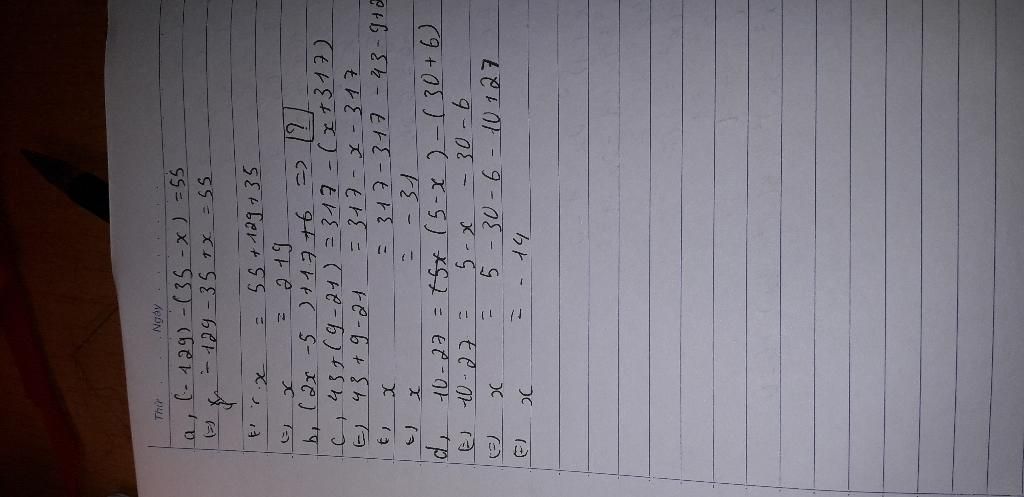 Thứ Ngày
a, (-129) - (35 - x) = 55
(=) -129 - 35 + x = 55
(=) x = 55 + 129 + 35
(=) x = 219
b, (2x - 5) + 17 + 6 => [?]
c, 43 + (9 - 21) = 317 - (x + 317)
(=) 43 + 9 - 21 = 317 - x - 317
(=) x = 317 - 317 - 43 - 9 + 2
(=) x = - 31
d, 10 - 27 = (5 - x) - (30 + 6)
(=) 10 - 27 = 5 - x - 30 - 6
(=) x = 5 - 30 - 6 - 10 + 27
(=) x = - 14